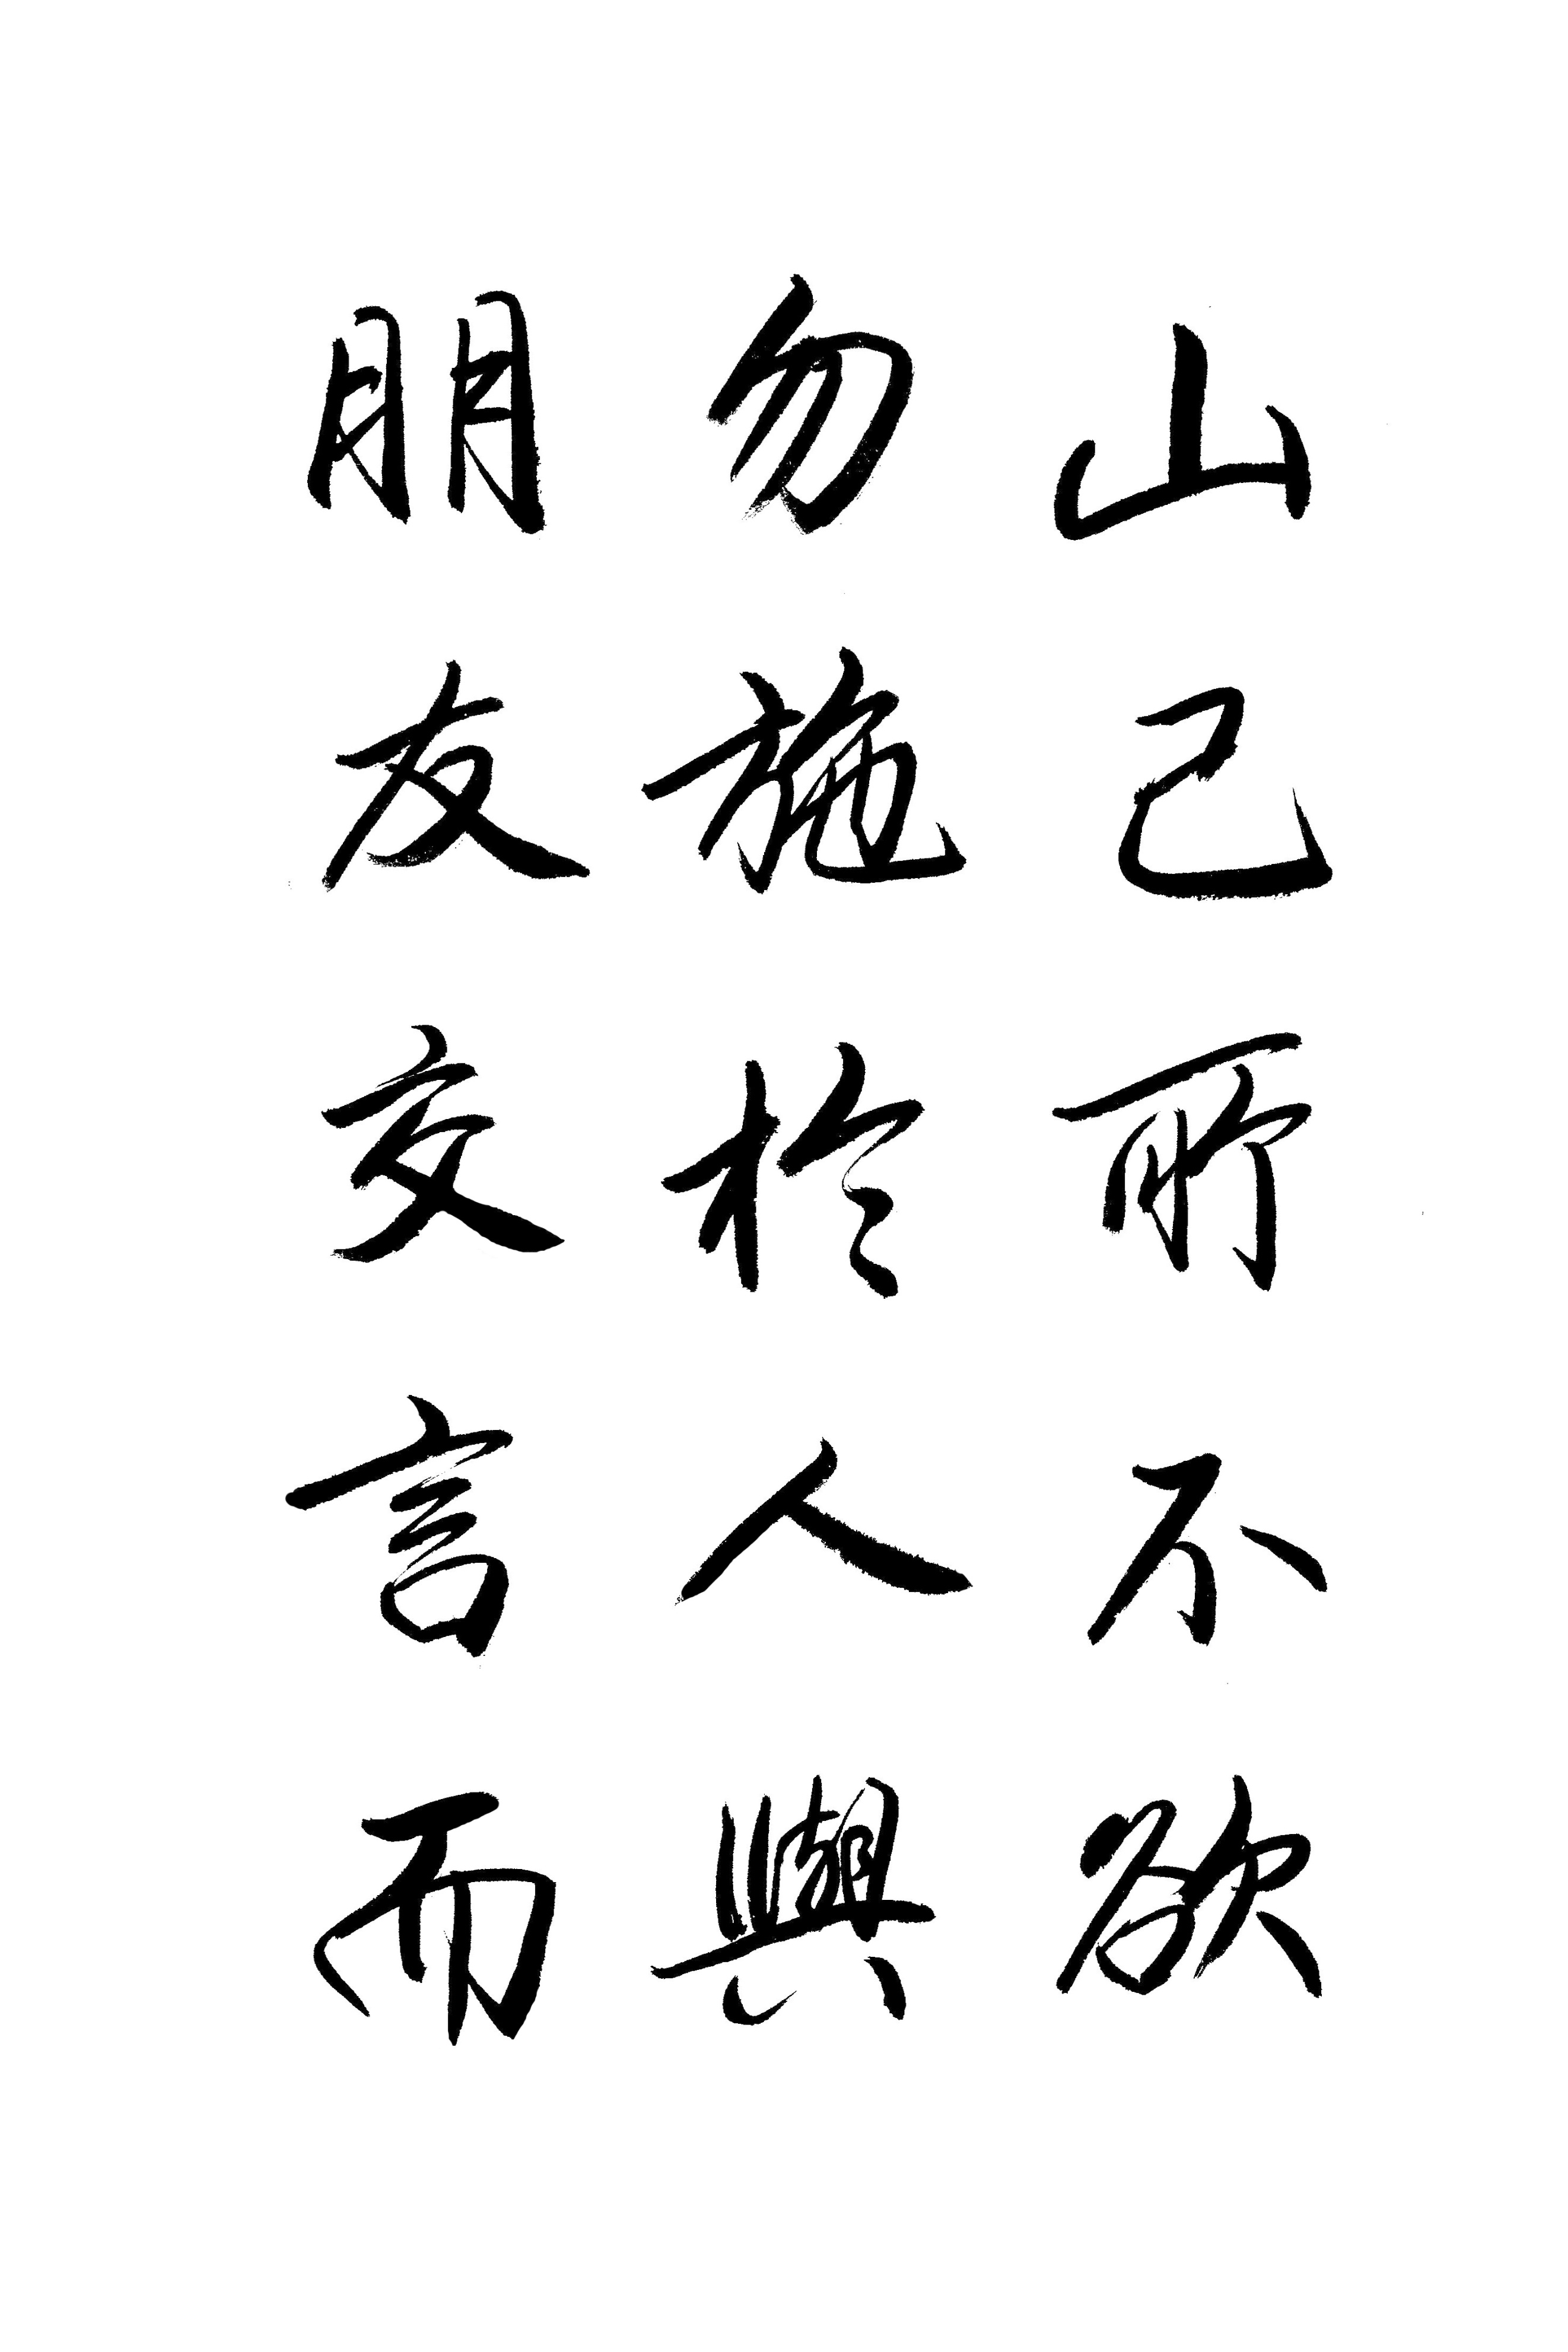 山己所不欲
勿施於人與
朋友交言而